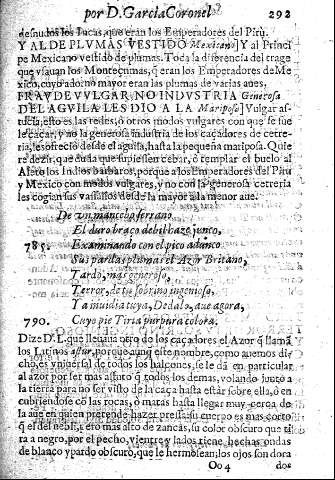 por D. Garcia Coronel. 292
desnudos los Iucas, que eran los Emperadores del Pirù.
Y AL DE PLVMAS VESTIDO Mexicano] Y al Princi
pe Mexicano vestido de plumas. Toca la diferencia del trage
que vsauan los Montecumas, q̃ eran los Emperadores de Me
xico, cuyo adorno mayor eran las plumas de varias aues.
FRAVDE VVLGAR, NO INDVSTRIA Generosa
DEL AGVILA LES DIO A LA Mariposa] Vulgar as-
tucia, esto es, las redes, ò otros modos vulgares con que se sue
le caçar, y no la generosa industria de los caçadores de cetre-
ria, les ofrecio desde el aguila, hasta la pequeña mariposa. Quie
re dezir, que nada que supiessen cebar, ò templar el buelo al
Aleto los Indios barbaros, porque a los Emperadores del Piru
y Mexico con modos vulgares, y no con la generosa cetreria
les cogian sus vassallos desde la mayor a la menor aue.
De vn mancebo serrano
El duro braço debil haze junco,
785. Examinando con el pico adunco
Sus pardas plumas el Azor Britano,
Tardo, mas generoso,
Terror, de tu sobrino ingenioso,
Ya inuidia tuya, Dedalo, aue agora,
790. Cuyo pie Tiria purpura colora.
Dize D. L. que lleuaua otro de los caçadores el Azor q̃ llamã
los Latinos astur, porque aunque este nombre, como auemos di-
cho, es vniuersal de todos los halcones, se le dà en particular
al azor por ser mas astuto q̃ todos los demas, volando junto a
la tierra para no ser visto de la caça hasta estar sobre ella, ò en
cubriendose cõ las rocas, ò matas hasta llegar muy cerca de
la aue en quien pretende hazer pressa, su cuerpo es mas corto
q̃ el del nebli, ero mas alto de zancas, su color obscuro que ti
ra a negro, por el pecho, vientre y lados tiene hechas ondas
de blanco y pardo obscuro, que le hermosean, los ojos son dora
Oo 4 dos